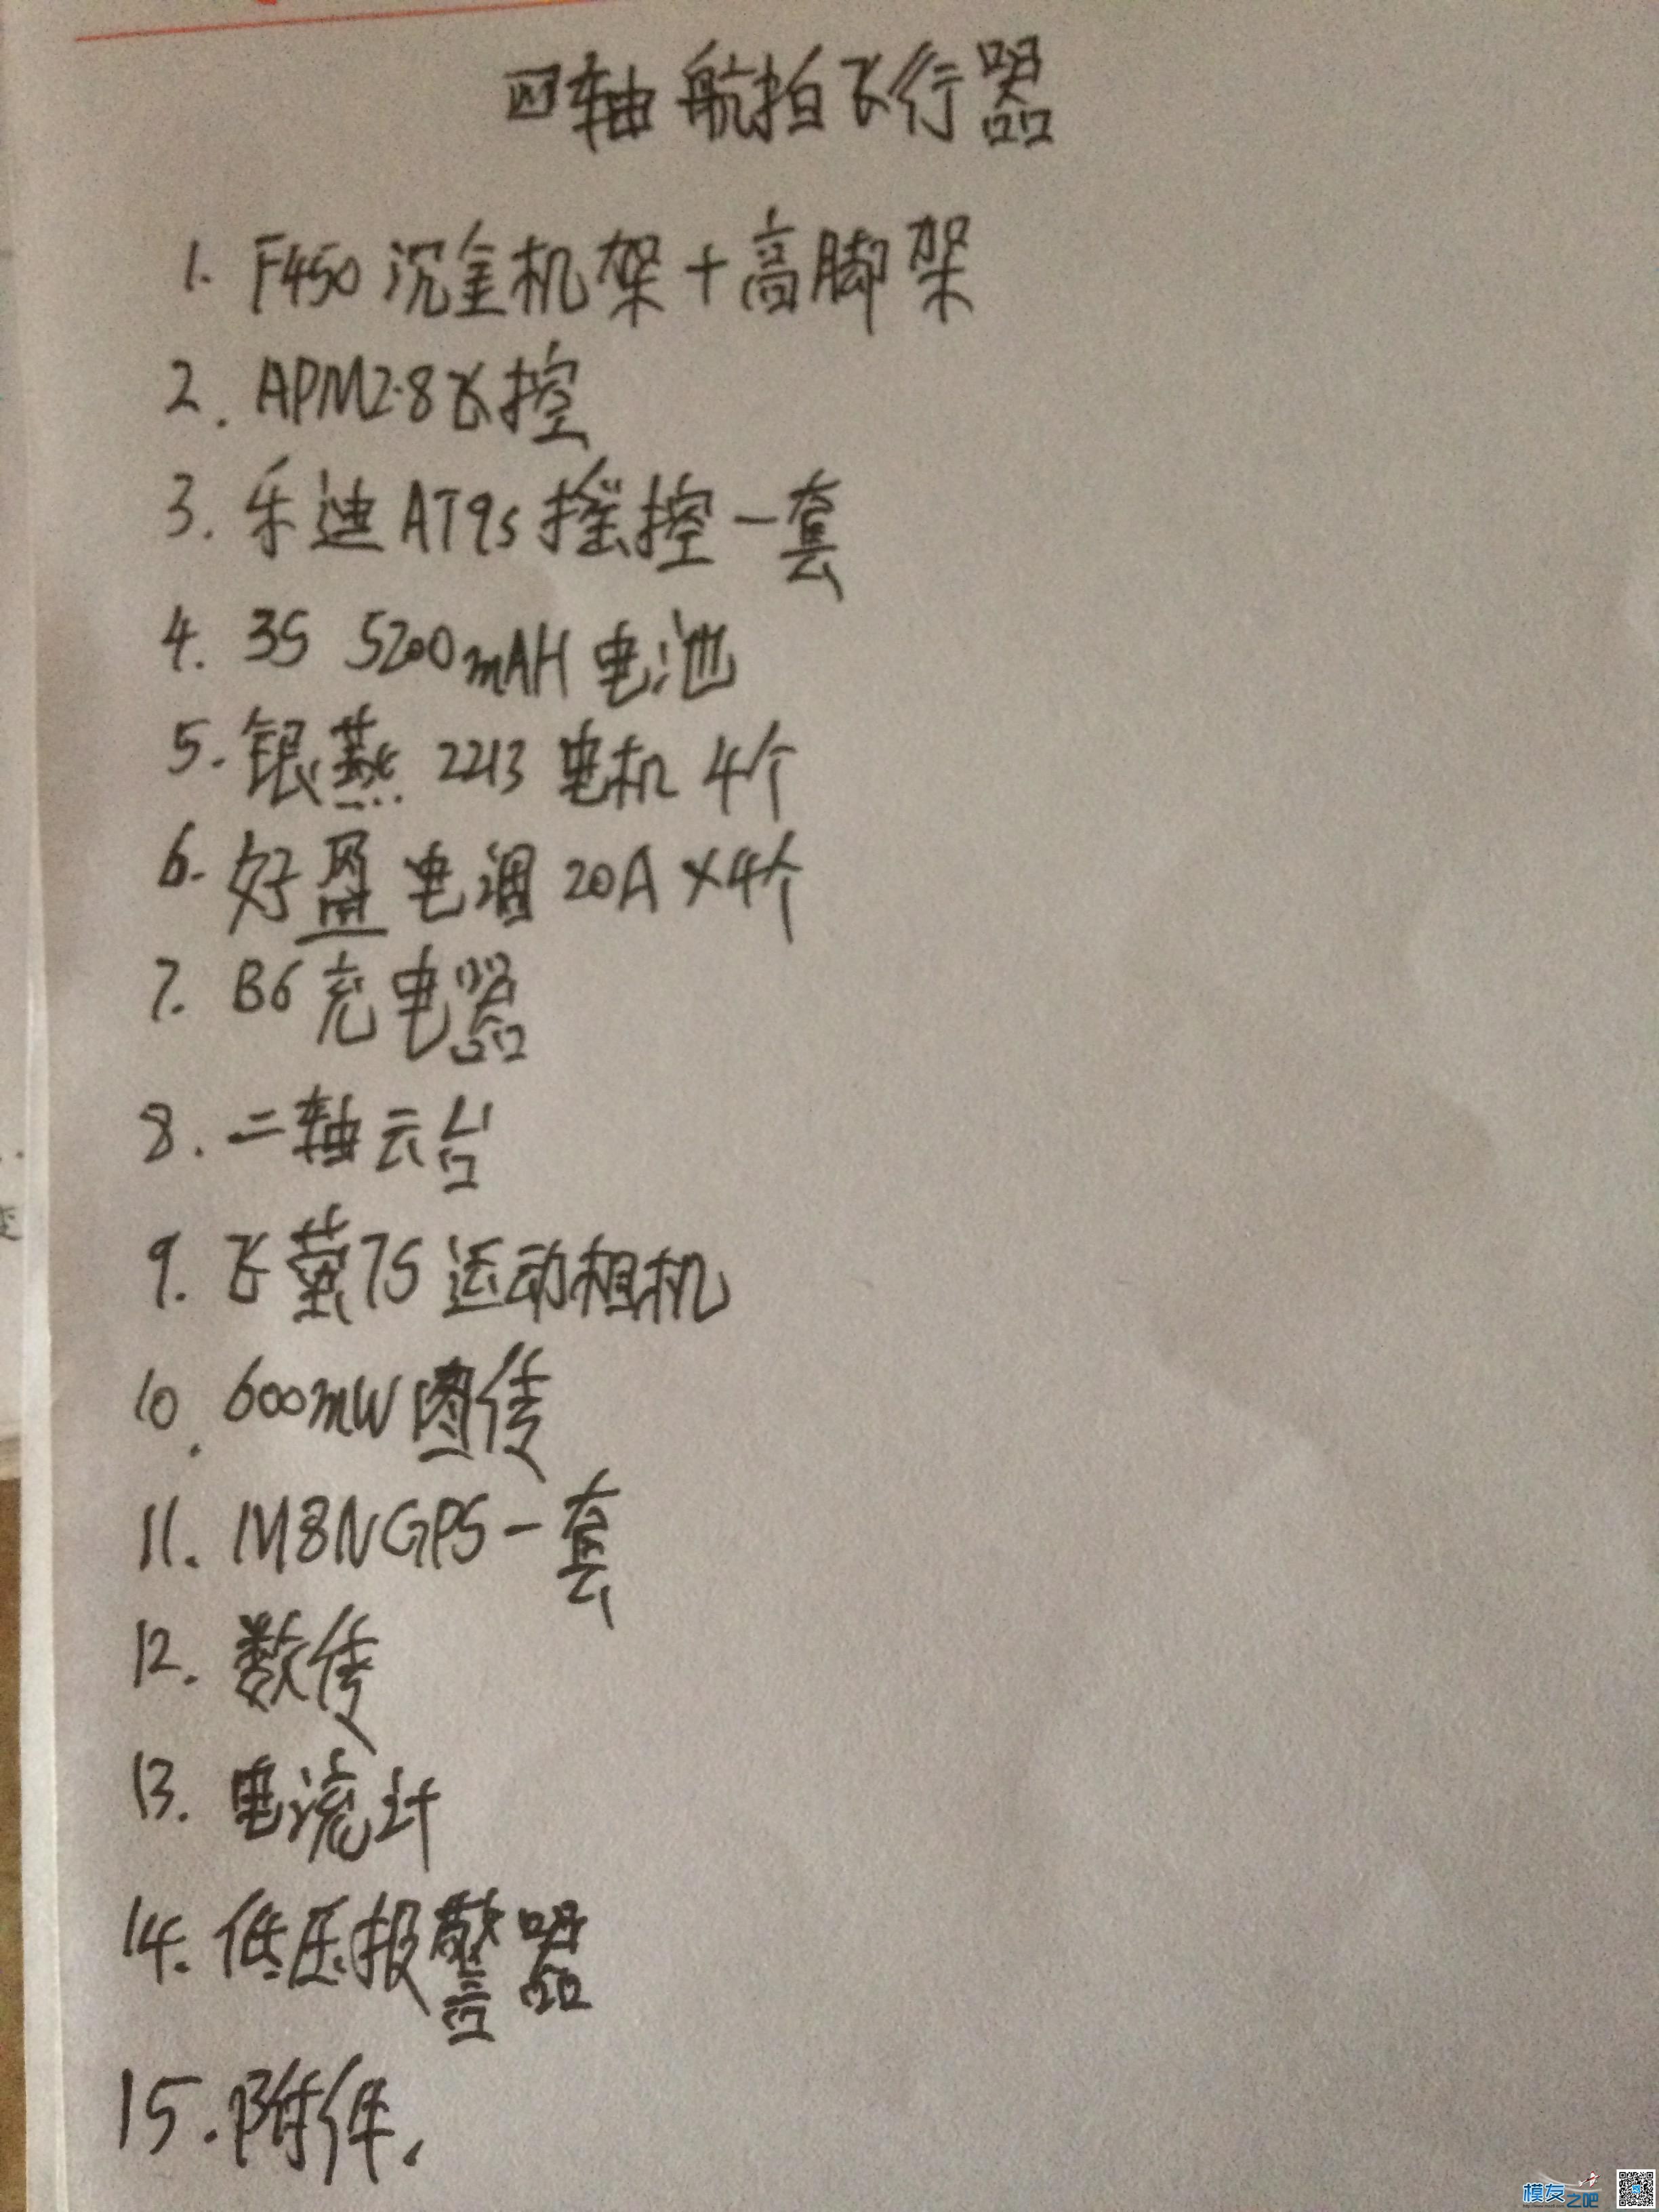 四轴航拍飞行器
1. F450沉金机架+高脚架
2. APM2.8飞控
3. 乐迪AT9s摇控一套
4. 3S 5200mAH电池
5. 银燕 2213 电机 4个
6. 好盈电调20A×4个
7. B6充电器
8. 二轴云台
9. 飞萤7S运动相机
10. 600mW图传
11. M8NGPS一套
12. 数传
13. 电流计
14. 低压报警器
15. 附件.
模友之吧